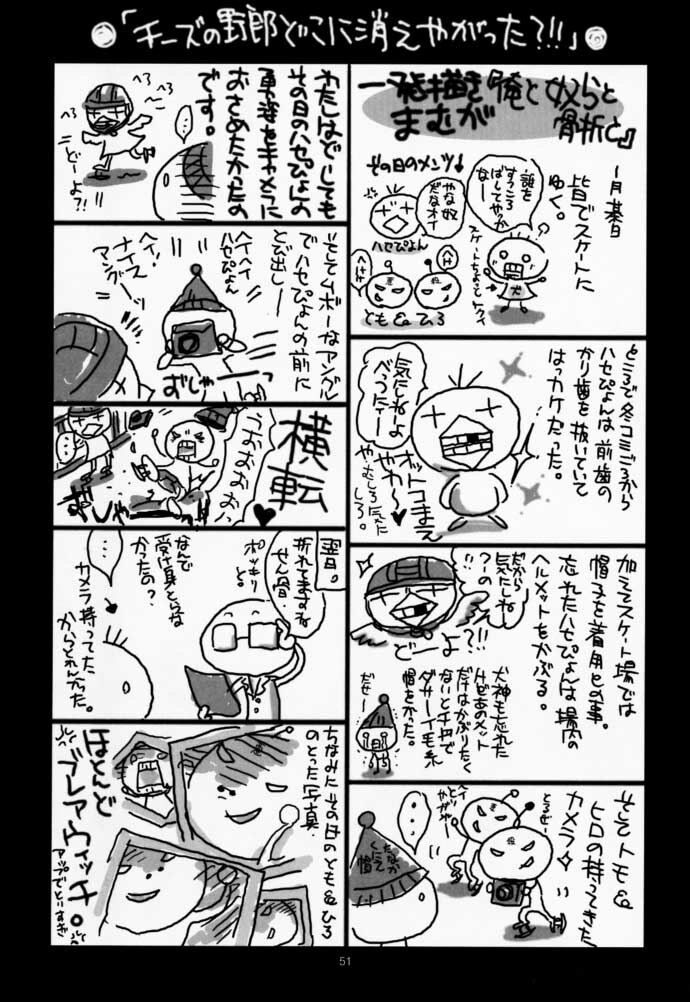 「チーズの野郎どこに消えやがった?!!」
一発描き『俺と奴らと
まむが
骨折と』
1月某日
皆でスケートに
ゆく。
その日のメンツ↓
誰を
すっころ
ばしてやっか
なー
やな奴
だなオイ
ハセぴょん
とも&ひろ
犬
ところで冬コミごろから
ハセぴょんは前歯の
かり歯を抜いていて
はっカケだった。
気にしねーよ
べつにィー
オットコまえ
やや〜♥
やむしろ気に
しろ。
加えてスケート場では
帽子を着用との事。
忘れたハセぴょんは場内の
ヘルメットもかぶる。
だから
気にしね
つーの
どーよ?!!
犬神も忘れた
けどあのメット
だけはかぶりたく
ないと千円で
ダサーイ毛糸
帽をかった。
だせー
そしてトモ&
ヒロの持ってきた
カメラ
とるぜー
・・・
わたしはどーしても
その日のハセぴょんの
勇姿をキャメラに
おさめたかったの
です。
へろ
へろ
・・・
どーよ?!!
そしてムボーなアングル
でハセぴょんの前に
とび出しー
ヘイヘイ
ハセぴょん
ヘイ!
ナイス
アングーッ
おしゃーっ
横転
うおおおおぉ
♥
・・・
翌日。
折れてますね
せん骨
ポッキリ
と。
なんで
受け身とらな
かったの?
・・・
カメラ持ってた
からとれんかった。
ちなみにその日のとも&ひろ
のとった写真
ほとんど
ブレアウィッチ。
アップでとりすぎ
51